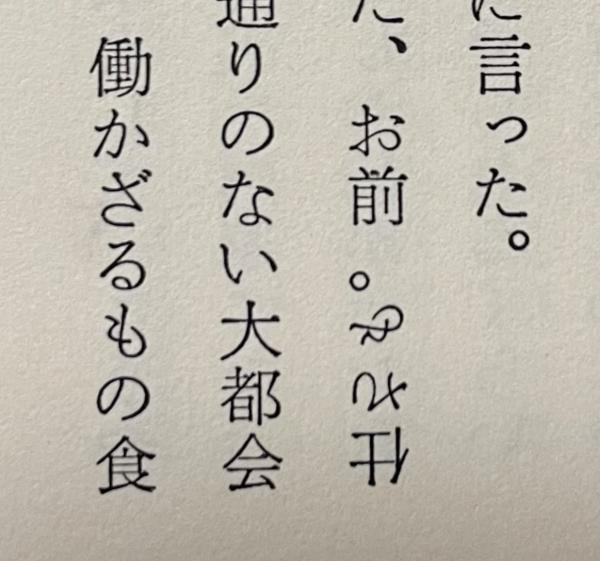 に言った。
た、お前
通りのない大都会
働かざるもの食